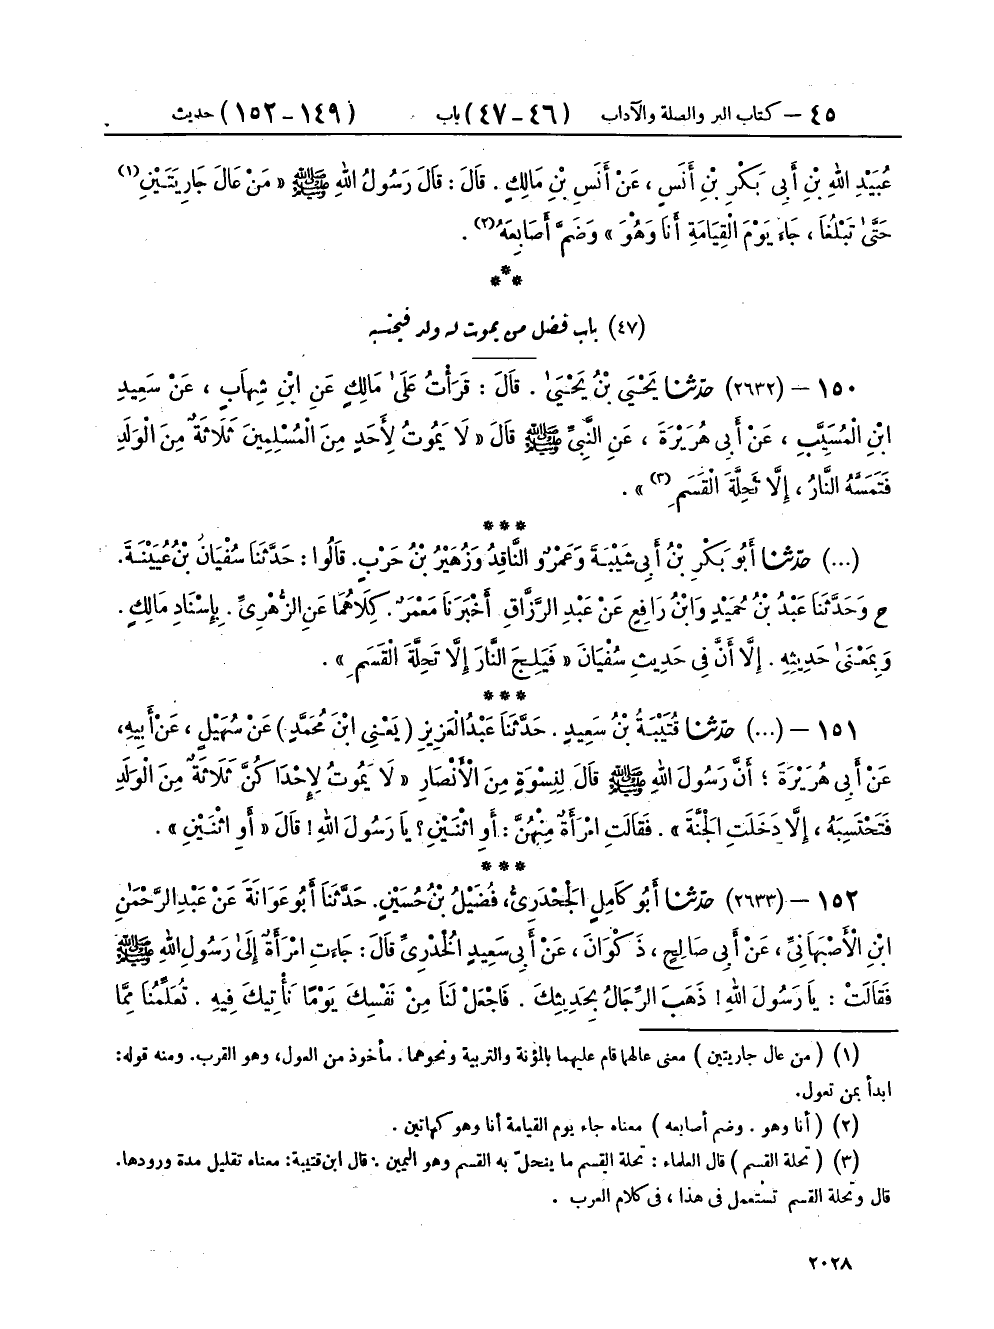 ٤٥ – كتاب البر والصلة والآداب (٤٦ – ٤٧) باب (١٤٩ – ١٥٢) حديث
عُبَيْدِ اللهِ بْنِ أَبِي بَكْرِ بْنِ أَنَسٍ، عَنْ أَنَسِ بْنِ مَالِكٍ. قَالَ: قَالَ رَسُولُ اللهِ ﷺ « مَنْ عَالَ جَارِيَتَيْنِ(١)
حَتَّىٰ تَبْلُغَا، جَاءَ يَوْمَ الْقِيَامَةِ أَنَا وَهُوَ » وَضَمَّ أَصَابِعَهُ(٢).
***
(٤٧) باب فضل من يموت له ولد فيحتسبه
١٥٠ – (٢٦٣٢) حدّثنا يَحْيَى بْنُ يَحْيَىٰ. قَالَ: قَرَأْتُ عَلَىٰ مَالِكٍ عَنِ ابْنِ شِهَابٍ، عَنْ سَعِيدِ
ابْنِ الْمُسَيَّبِ، عَنْ أَبِي هُرَيْرَةَ، عَنِ النَّبِيِّ ﷺ قَالَ « لَا يَمُوتُ لِأَحَدٍ مِنَ الْمُسْلِمِينَ ثَلَاثَةٌ مِنَ الْوَلَدِ
فَتَمَسَّهُ النَّارُ، إِلَّا تَحِلَّةَ الْقَسَمِ(٣) ».
***
(...) حدّثنا أَبُو بَكْرِ بْنُ أَبِي شَيْبَةَ وَعَمْرٌو النَّاقِدُ وَزُهَيْرُ بْنُ حَرْبٍ. قَالُوا: حَدَّثَنَا سُفْيَانُ بْنُ عُيَيْنَةَ.
ح وَحَدَّثَنَا عَبْدُ بْنُ حُمَيْدٍ وَابْنُ رَافِعٍ عَنْ عَبْدِ الرَّزَّاقِ. أَخْبَرَنَا مَعْمَرٌ. كِلَاهُمَا عَنِ الزُّهْرِيِّ. بِإِسْنَادِ مَالِكٍ.
وَبِمَعْنَىٰ حَدِيثِهِ. إِلَّا أَنَّ فِي حَدِيثِ سُفْيَانَ « فَيَلِجَ النَّارَ إِلَّا تَحِلَّةَ الْقَسَمِ ».
***
١٥١ – (...) حدّثنا قُتَيْبَةُ بْنُ سَعِيدٍ. حَدَّثَنَا عَبْدُ الْعَزِيزِ (يَعْنِي ابْنَ مُحَمَّدٍ) عَنْ سُهَيْلٍ، عَنْ أَبِيهِ،
عَنْ أَبِي هُرَيْرَةَ؛ أَنَّ رَسُولَ اللهِ ﷺ قَالَ لِنِسْوَةٍ مِنَ الْأَنْصَارِ « لَا يَمُوتُ لِإِحْدَاكُنَّ ثَلَاثَةٌ مِنَ الْوَلَدِ
فَتَحْتَسِبَهُ، إِلَّا دَخَلَتِ الْجَنَّةَ ». فَقَالَتِ امْرَأَةٌ مِنْهُنَّ: أَوِ اثْنَيْنِ؟ يَا رَسُولَ اللهِ! قَالَ « أَوِ اثْنَيْنِ ».
***
١٥٢ – (٢٦٣٣) حدّثنا أَبُو كَامِلٍ الْجَحْدَرِيُّ، فُضَيْلُ بْنُ حُسَيْنٍ. حَدَّثَنَا أَبُو عَوَانَةَ عَنْ عَبْدِ الرَّحْمَٰنِ
ابْنِ الْأَصْبَهَانِيِّ، عَنْ أَبِي صَالِحٍ، ذَكْوَانَ، عَنْ أَبِي سَعِيدٍ الْخُدْرِيِّ قَالَ: جَاءَتِ امْرَأَةٌ إِلَىٰ رَسُولِ اللهِ ﷺ
فَقَالَتْ: يَا رَسُولَ اللهِ! ذَهَبَ الرِّجَالُ بِحَدِيثِكَ. فَاجْعَلْ لَنَا مِنْ نَفْسِكَ يَوْمًا نَأْتِيكَ فِيهِ. تُعَلِّمُنَا مِمَّا
(١) (من عال جاريتين) معنى عالهما قام عليهما بالمؤنة والتربية ونحوهما. مأخوذ من العول، وهو القرب. ومنه قوله:
ابدأ بمن تعول.
(٢) (أنا وهو. وضم أصابعه) معناه جاء يوم القيامة أنا وهو كهاتين.
(٣) (تحلة القسم) قال العلماء: تحلة القسم ما ينحلّ به القسم وهو اليمين. قال ابن قتيبة: معناه تقليل مدة ورودها.
قال وتحلة القسم تستعمل في هذا، في كلام العرب.
٢٠٢٨